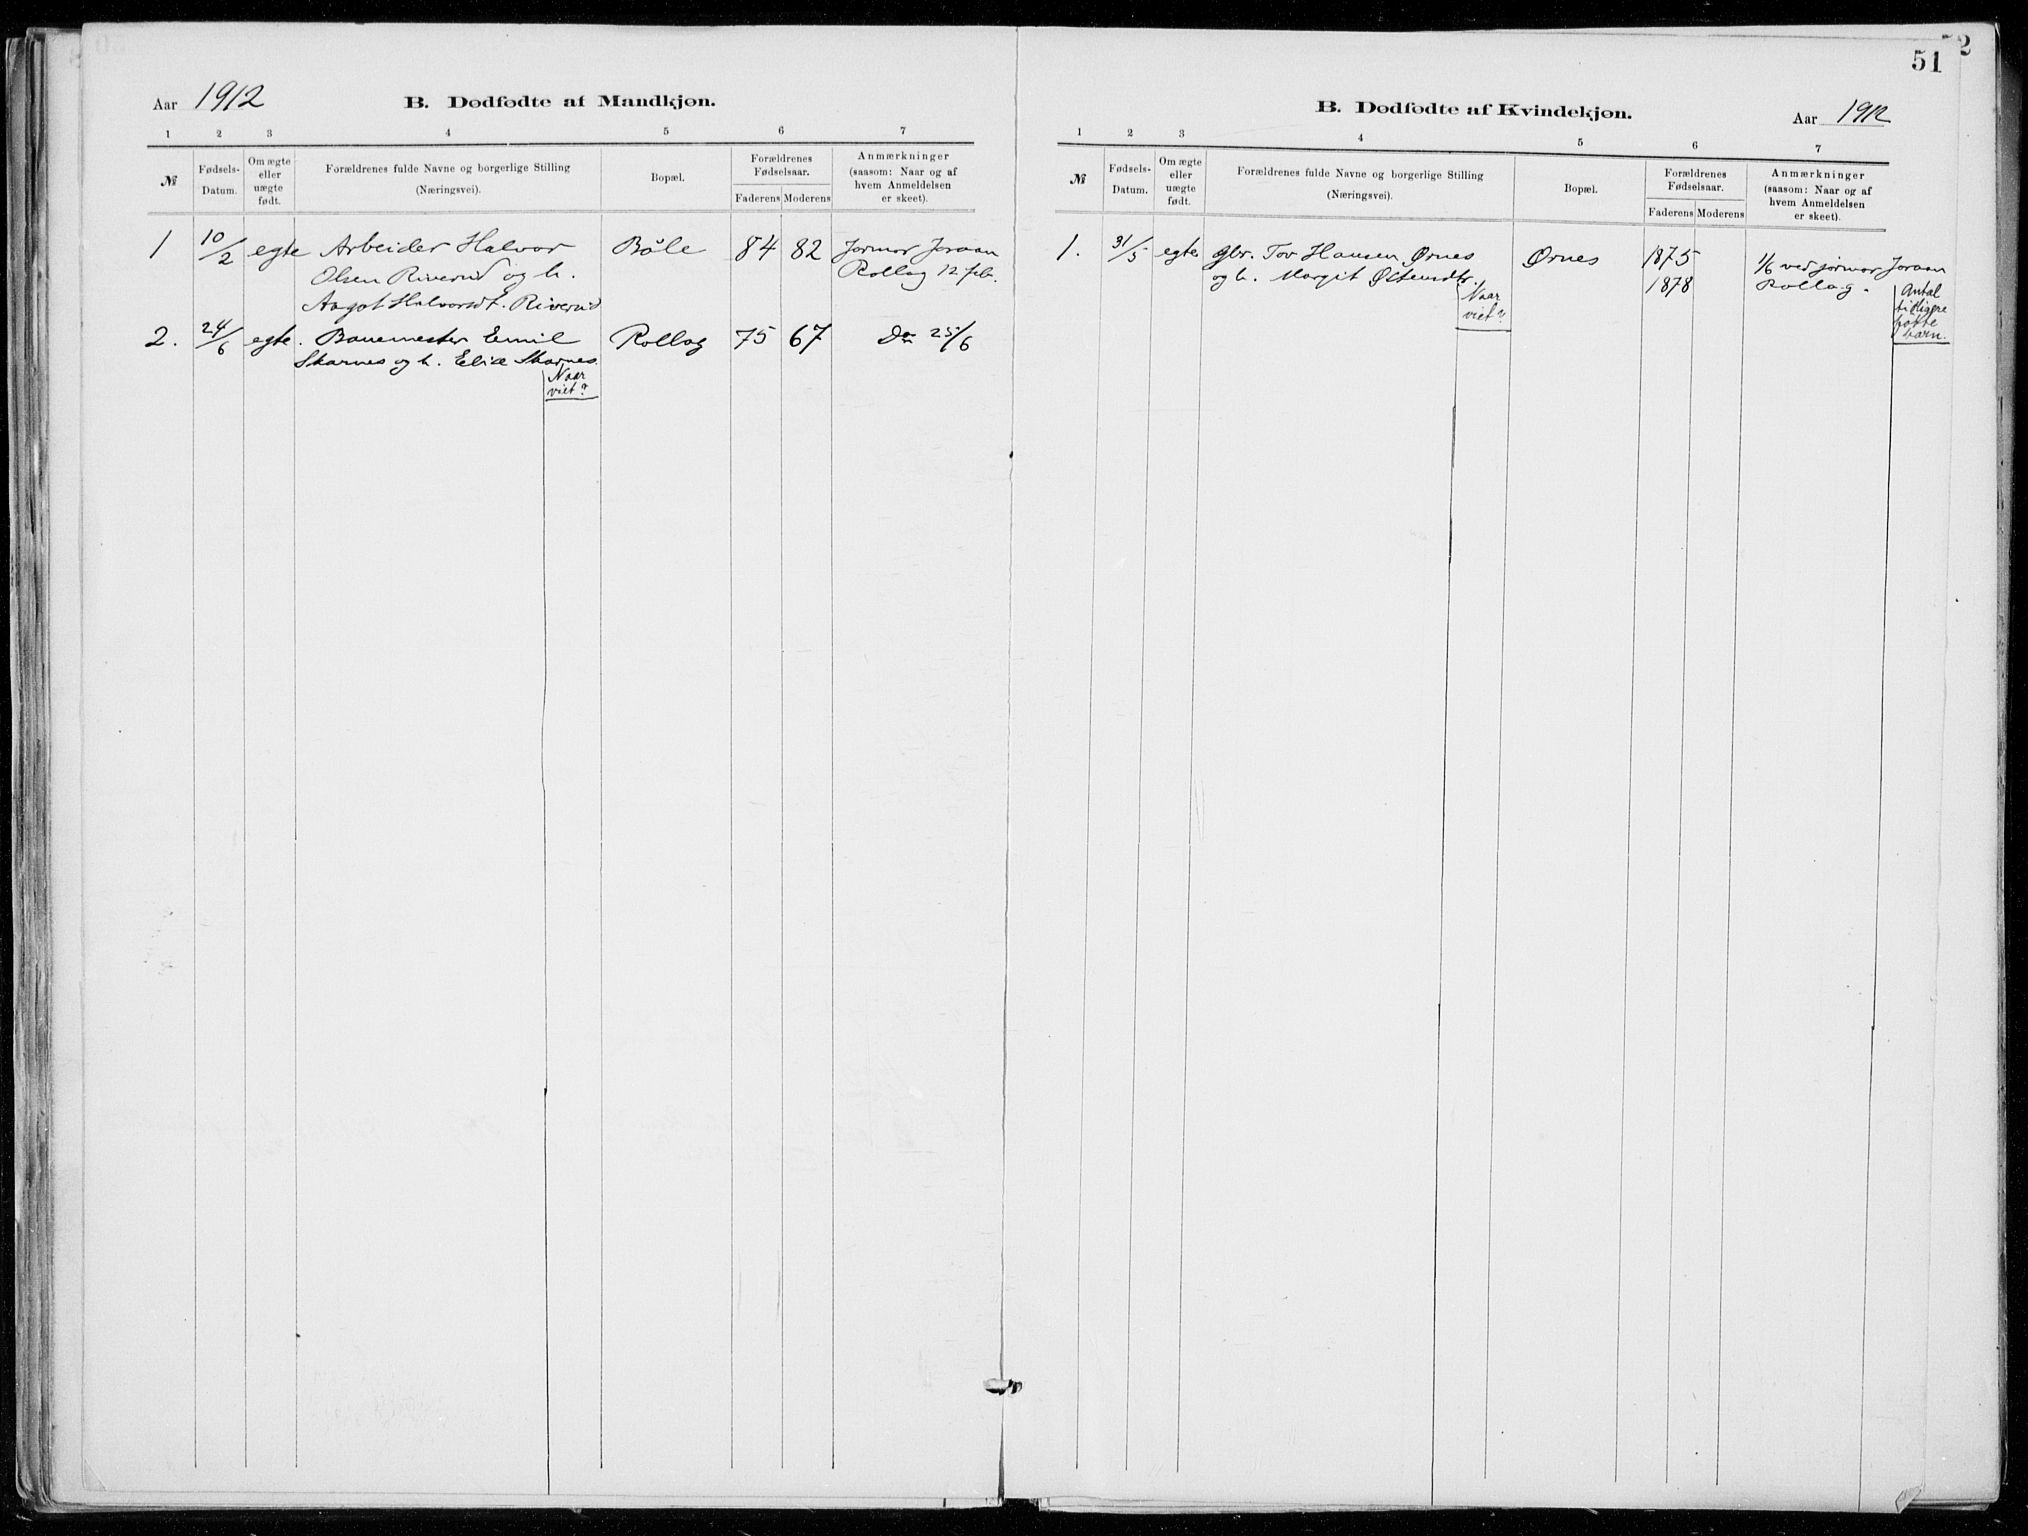 Aar 1912 B. Dødfødte af Mandkjøn.
1 2 3 4 5 6 7
№ Fødsels-Datum. Om ægte eller uægte født. Forældrenes fulde Navne og borgerlige Stilling (Næringsvei). Bopæl. Forældrenes Fødselsaar. Faderens Moderens Anmærkninger (saasom: Naar og af hvem Anmeldelsen er skeet).
1 10/2 egte Arbeider Halvor Bøle 84 82 Jormor Joraan
Olsen Riverud og h. Rollag 12 feb.
Aagot Halvorsdt. Riverud
2. 24/6 egte. Banemester Emil Rollag 75 67 Do 25/6
Skarnes og h. Elise Skarnes.
Naar
viet?
51
52
B. Dødfødte af Kvindekjøn. Aar 1912
1 2 3 4 5 6 7
№ Fødsels-Datum. Om ægte eller uægte født. Forældrenes fulde Navne og borgerlige Stilling (Næringsvei). Bopæl. Forældrenes Fødselsaar. Faderens Moderens Anmærkninger (saasom: Naar og af hvem Anmeldelsen er skeet).
1. 31/5 egte gbr. Tov Hansen Ørnes Ørnes 1875 1/6 ved jormor Joraan
og h. Margit Østensdtr. 1878 Rollag.
Naar
viet?
Antal
tidligere
fødte
barn.